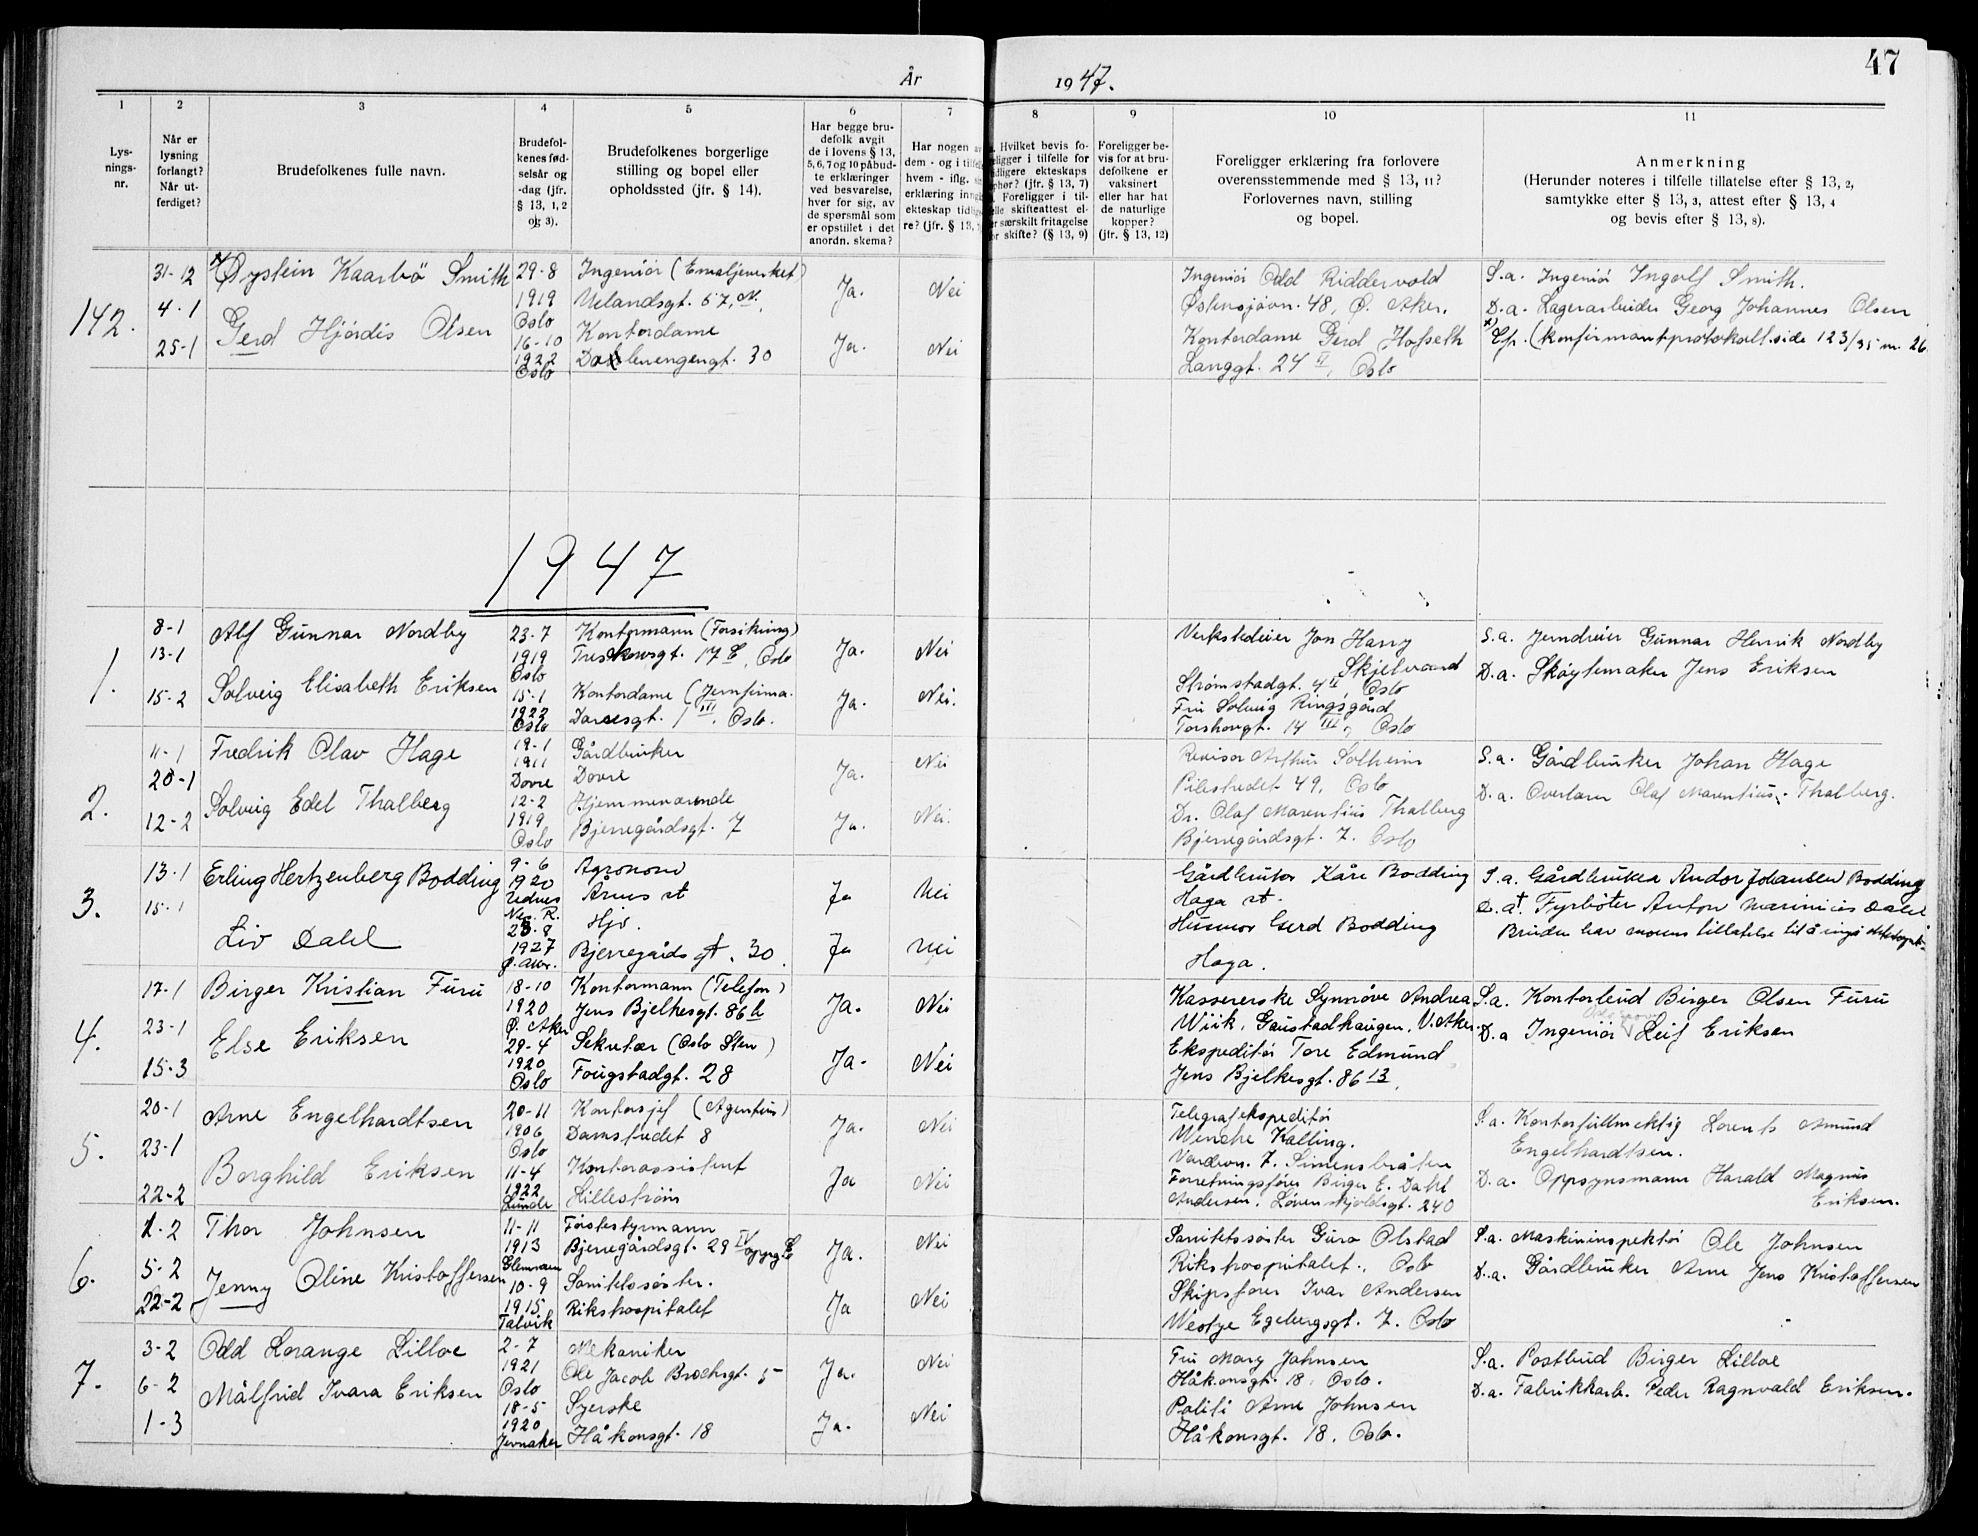 47
År 1947.
1 2 3 4 5 6 7 8 9 10 11
Lys-
nings-
nr.
Når er
lysning
forlangt?
Når ut-
ferdiget?
Brudefolkenes fulle navn.
Brudefol-
kenes fød-
selsår og
-dag (jfr.
§ 13, 1, 2
og 3).
Brudefolkenes borgerlige
stilling og bopel eller
opholdssted (jfr. § 14).
Har begge bru-
defolk avgit
de i lovens § 13,
5, 6, 7 og 10 påbud-
te erklæringer
ved besvarelse,
hver for sig, av
de spørsmål som
er opstillet i det
anordn. skema?
Har nogen
dem - og i
hvem - iflg.
erklæring
ekteskap
re? (jfr. § 13,
Hvilket bevis fo-
i tilfelle for
ekteskaps
(§ 13, 7)
Foreligger i til-
skifteattest el-
særskilt fritagelse
skifte? (§ 13, 9)
Foreligger be-
vis for at bru-
defolkene er
vaksinert
eller har hat
de naturlige
kopper?
(jfr. § 13, 12)
Foreligger erklæring fra forlovere
overensstemmende med § 13, 11?
Forlovernes navn, stilling
og bopel.
Anmerkning
(Herunder noteres i tilfelle tillatelse efter § 13, 2,
samtykke efter § 13, 3, attest efter § 13, 4
og bevis efter § 13, 8).
142.
31-12
4-1
25-1
x) Øystein Kaarbö Smith
Gerd Hjördis Olsen
29-8
1919
Oslo
16-10
1922
Oslo
Ingeniör (Emaljeverket)
Uelandsgt. 57, N.
Kontordame
Dælenengengt. 30
Ja.
Ja.
Nei
Nei
Ingeniör Odd Riddervold
Østensjøvn. 48, Ø. Aker.
Kontordame Gerd Hofseth
Langgt. 24 II, Oslo
S.a. Ingeniör Ingolf Smith.
D.a. Lagerarbeider Georg Johannes Olsen
x) Efr. (konfirmantprotokoll side 123/35 nr. 26
1947
1.
8-1
13-1
15-2
Alf Gunnar Nordby
Solveig Elisabeth Eriksen
23-7
1919
Oslo
15-1
1922
Oslo
Kontormann (Forsikring)
Treschowsgt. 17 E, Oslo
Kontordame (Jernfirma.
Daresgt. 1 III, Oslo.
Ja.
Ja.
Nei
Nei.
Verkstedeier Jon Harry
Skjelvaard
Strømstadgt. 4 II, Oslo
Fru Solveig Ringsgård
Torshovgt. 14 III, Oslo
S.a. Jerndreier Gunnar Henrik Nordby
D.a. Skøytemaker Jens Eriksen
2.
11-1
20-1
12-2
Fredrik Olav Hage
Solveig Edel Thalberg
19-1
1911
Dovre
12-2
1919
Oslo
Gårdbruker
Dovre
Hjemmeværende
Bjerregårdsgt. 7
Ja.
Ja.
Nei
Nei.
Revisor Arthur Solheim
Pilestredet 49, Oslo
Dr. Olaf Marentius Thalberg
Bjerregårdsgt. 7. Oslo
S.a. Gårdbruker Johan Hage
D.a. Overlærer Olaf Marentius Thalberg.
3.
13-1
15-1
Erling Hertzenberg Bodding
Liv Dahl
9-6
1920
Udnes
Nes. R.
23-8
1927
Ø. Aker.
Agronom
Årnes st
Hjv.
Bjerregårds gt. 30
Ja
Ja
Nei
Nei
Gårdbruker Kåre Bodding
Haga st.
Husmor Gerd Bodding
Haga.
S.a. Gårdbruker Andor Johansen Bodding
D.a†. Fyrbøter Anton Marinius Dahl
Bruden har morens tillatelse til å inngå
4.
17-1
23-1
15-3
Birger Kristian Furu
Else Eriksen
18-10
1920
Ø. Aker
29-4
1920
Oslo
Kontormann (Telefon)
Jens Bjelkesgt. 86 h
Sekretær (Oslo Sten)
Fougstadgt. 28
Ja.
Ja.
Nei
Nei
Kassererske Synnöve Andrea
Wiik, Gaustadhaugen, V. Aker.
Ekspeditör Tore Edmund
Jens Bjelkesgt. 86 13.
S.a. Kontorbud Birger Olsen Furu
D.a Ingeniör Leif Eriksen
5.
20-1
23-1
22-2
Arne Engelhardtsen
Borghild Eriksen
20-11
1906
Oslo
11-4
1922
Lunde
Kontorsjef (Agentur)
Damstredet 8
Kontorassistent
Lilleström
Ja.
Ja
Nei
Nei
Telegrafekspeditör
Wenche Kalling.
Vardevn. 7. Simensbråten
Forretningsförer Birger E. Dahl
Andersen, Lörenskjoldsgt. 240
S.a. Kontorfullmektig Lorents Amund
Engelhardtsen.
D.a. Oppsynsmann Harald Magnus
Eriksen.
6.
1-2
5-2
22-2
Thor Johnsen
Jenny Oline Kristoffersen
11-11
1913
Glemmen
10-9
1915
Talvik
Förstestyrmann
Bjerregårdsgt. 29 IV oppg E
Sanitetssöster.
Rikshospitalet
Ja.
Ja
Nei
Nei
Sanitetssöster Guro Olstad
Rikshospitalet., Oslo
Skipsförer Ivar Andersen
Westye Egebergsgt. 7. Oslo
S.a. Maskininspektör Ole Johnsen
D.a. Gårdbruker Arne Jens Kristoffersen
7.
3-2
6-2
1-3
Odd Lorange Lilloe
Målfrid Ivara Eriksen
2-7
1921
Oslo
18-5
1920
Jevnaker
Mekaniker
Ole Jacob Brochsgt. 5
Syerske
Håkonsgt. 18
Ja.
Ja.
Nei
Nei
Fru Mary Johnsen
Håkonsgt. 18. Oslo.
Politi Arne Johnsen
Håkonsgt. 18. Oslo.
S.a. Postbud Birger Lilloe
D.a. Fabrikkarb. Peder Ragnvald Eriksen.